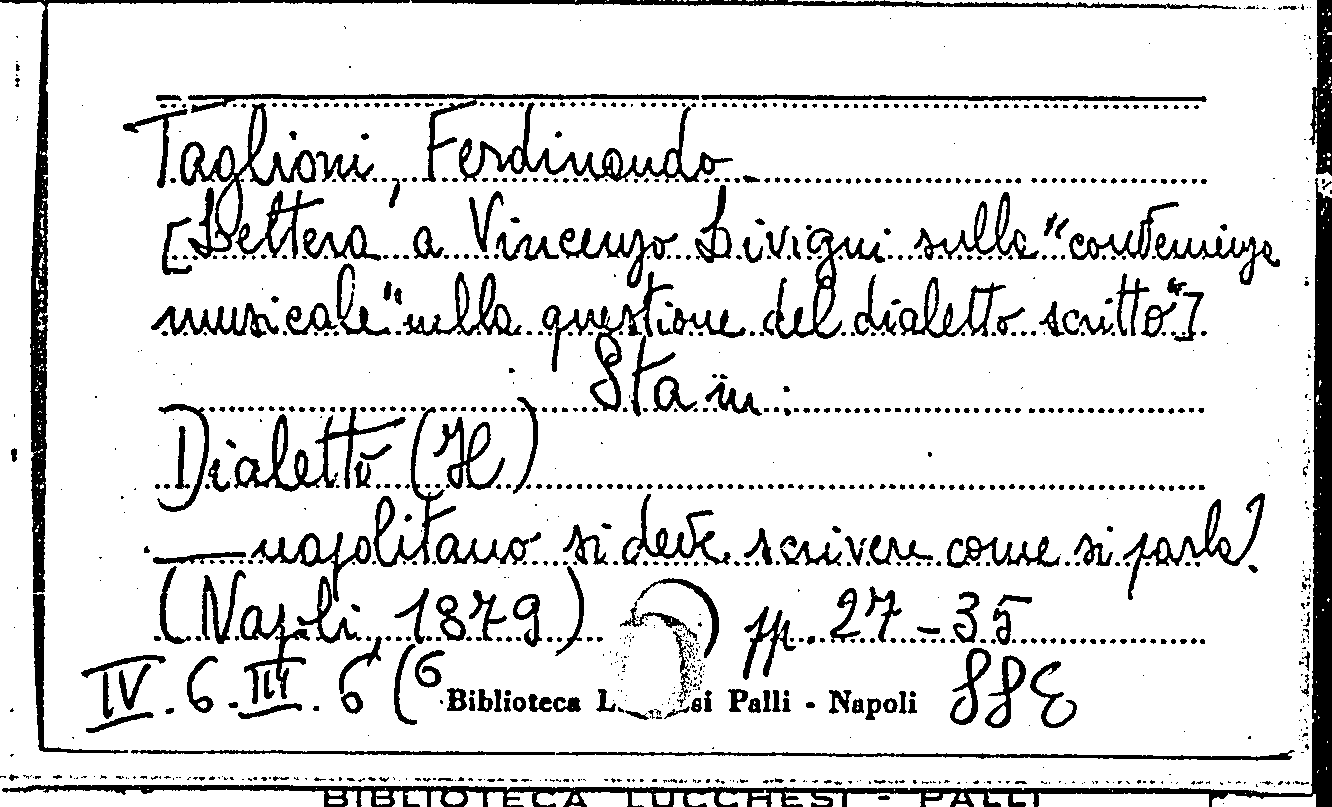 Taglioni, Ferdinando
[Lettera a Vincenzo Livigni sulla "convenienza
musicale" nella questione del dialetto scritto"]
Stam.
Dialetto (Il)
— napolitano si deve scrivere come si parla?
(Napoli, 1879) ) pp. 27-35
IV. 6. III. 6 (6 Biblioteca L si Palli - Napoli
BIBLIOTECA LUCCHESI - PALLI